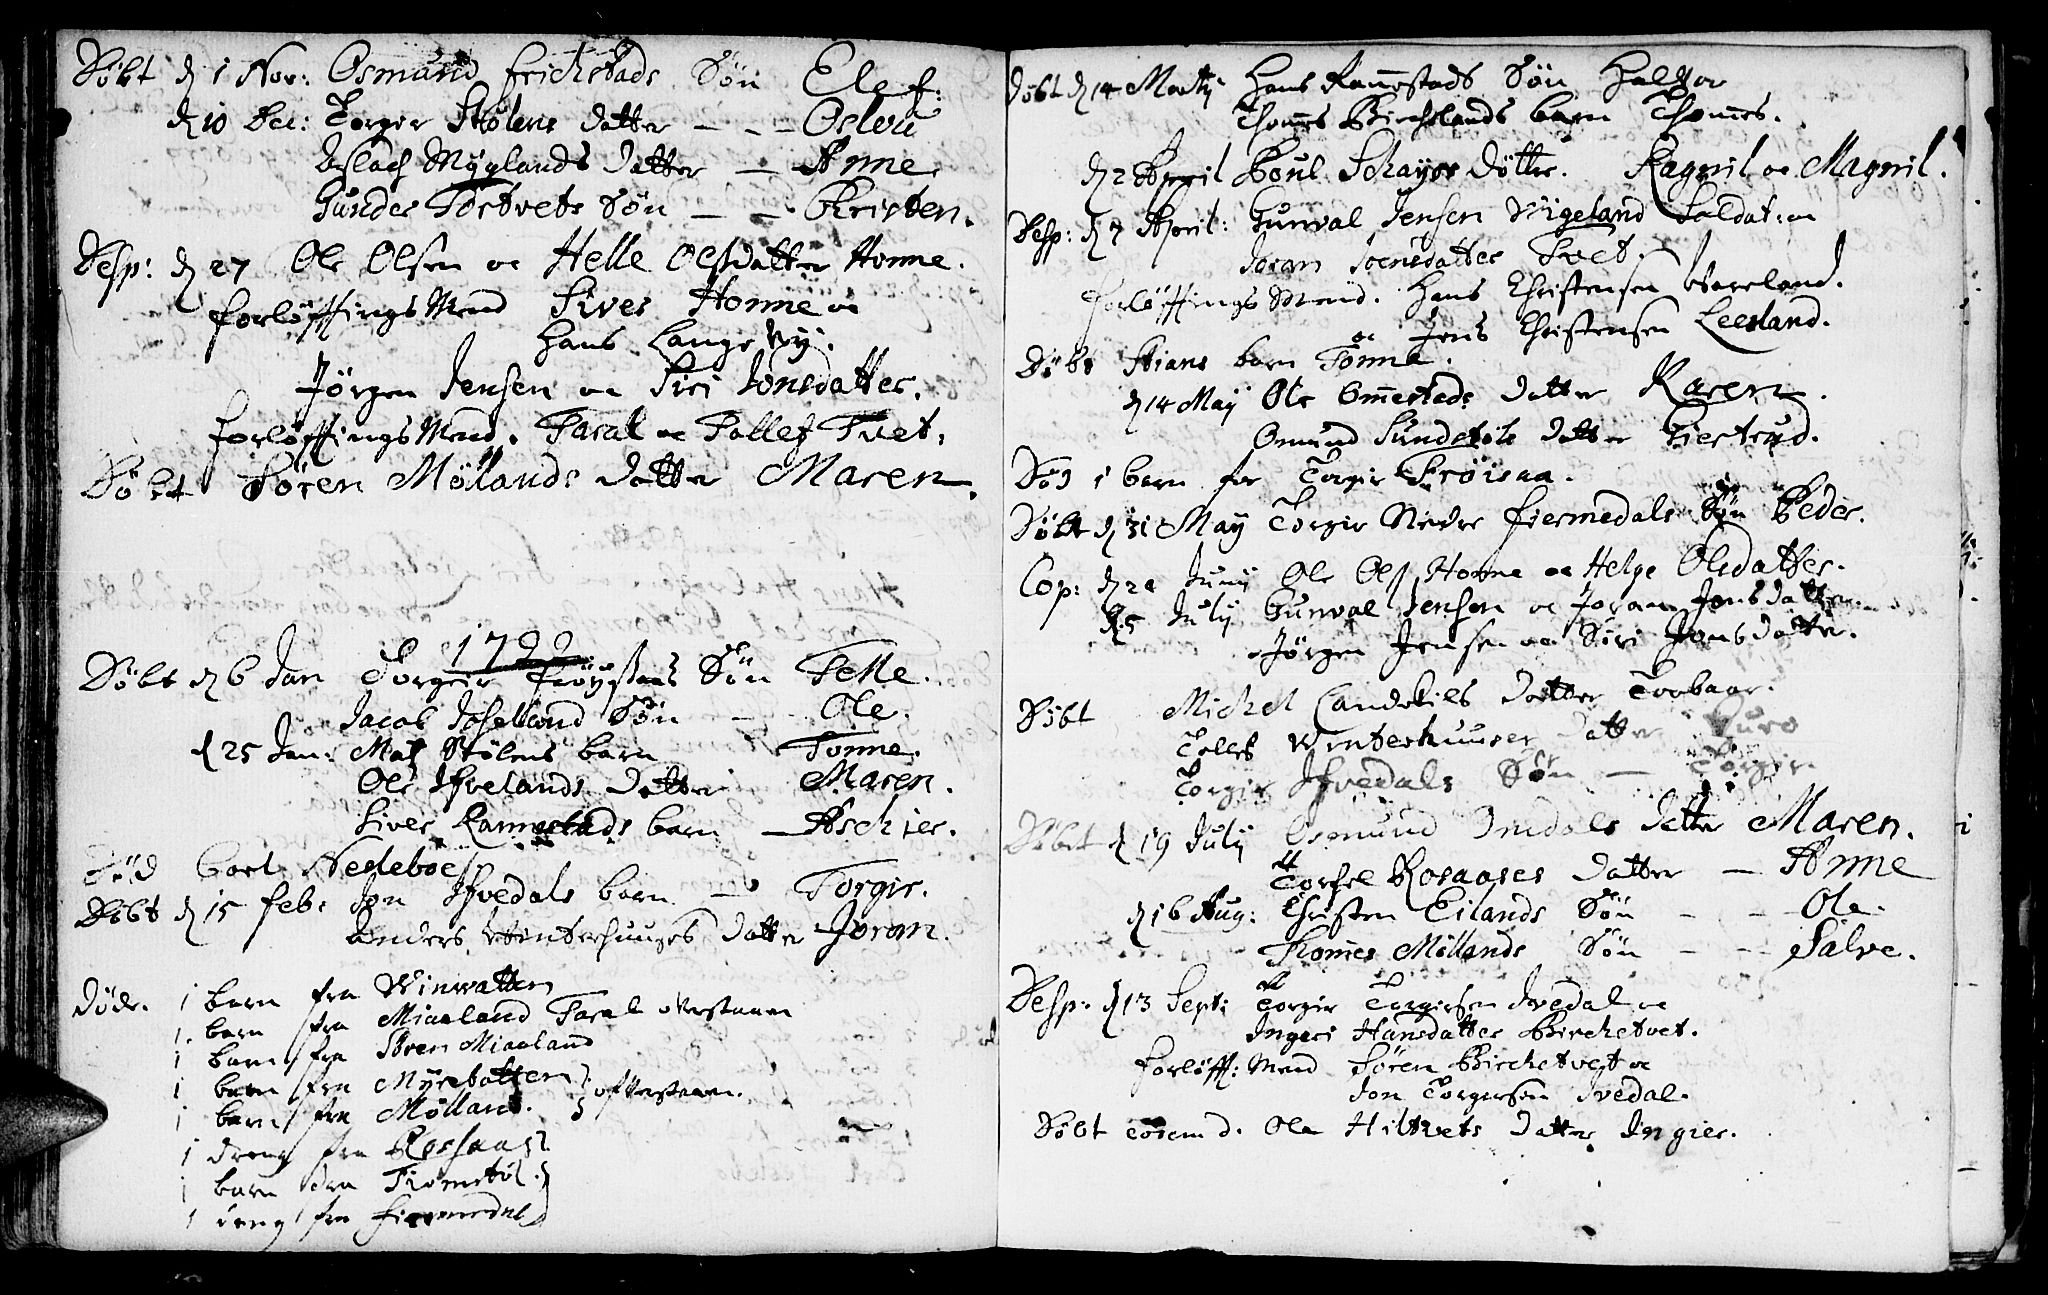 Døbt d 1 Nov: Osmund Erichstads Søn Elef:
d 10 Dec: Torgir Stølens datter - - - Oslou
Aslach Møglands datter - Anne
Gunder Tostvets Søn - - Kristen.
Desp: d 27 Ole Olsen oc Helle Olsdatter Honne.
forløffings Mend Siver Honne oc
Hans Langevy.
Jørgen Jensen oc Siri Jonsdatter.
forløffings Mend. Taral oc Tollef Tvet.
Døbt Søren Mølands datter Maren.
1722
Døbt d 6 Jan Torgeir Frøystads Søn Telle.
Jacob Joselland Søn - Ole.
d 25 Jan: Mats Stølens barn Tonne.
Ole Ifvelands datter Maren.
Siver Rannestads barn - Aschier.
Død Boel Nedeboe
Døbt d 15 Feb: Jon Ifvedals barn - Torgir.
Anders Winterhuuges datter Joran.
døde. 1 barn fra Winvatten
1. barn fra Miaaland Taral
1 barn fra Søren Miaaland
1 barn fra Myrebatten
1 barn fra Mølland.
1 dreng fra Rossaas
1 barn fra Tiomstøl.
1 dreng fra Fiermedal
Døbt d 14 Martj Hans Rannestads Søn Halvor
Thomes Birchelands barn Thomes.
d 2 April Poul Schayes Døttre. Ragnil oc Magnil.
Desp: d 7 April: Gunval Jensen Wigeland Soldat: oc
Joran Joensdatter Tvet.
forløffings Mend. Hans Christensen Vareland.
oc Jens Christensen Leesland.
Døbt Stians barn Tonne.
d 14 May Ole Omestads datter Karen.
Omund Sundstøls datter Giertrud.
Død 1 barn for Torgir Frøisaa.
Døbt d 31 May Torgir Nedre Fiermedals Søn Peder.
Cop: d 2 Juny Ole Ols. Honne oc Helge Olsdatter.
d. 5 July Gunval Jensen oc Joran Jonsdatter
Jørgen Jensen oc Siri Jonsdatter.
Døbt Michel Candekils datter Torbaar.
Tellef Winterhuuges datter Guro
Torgir Ifvedals Søn - Torgir
Døbt d 19 July Osmund Imdals datter Maren.
Torchel Rosaases datter - Anne
d 16 Aug: Christen Eilands Søn - - Ole.
Thomes Møllands Søn - - Salve.
Desp: d 13 Sept: Torgir Torgirsen Ivedal oc
Ingeri Hansdatter Birchetvet.
forløff: Mend Søren Birchetvet oc
Jon Torgersen Ivedal.
Døbt eodem d. Ole Hiltvets datter Ingier.